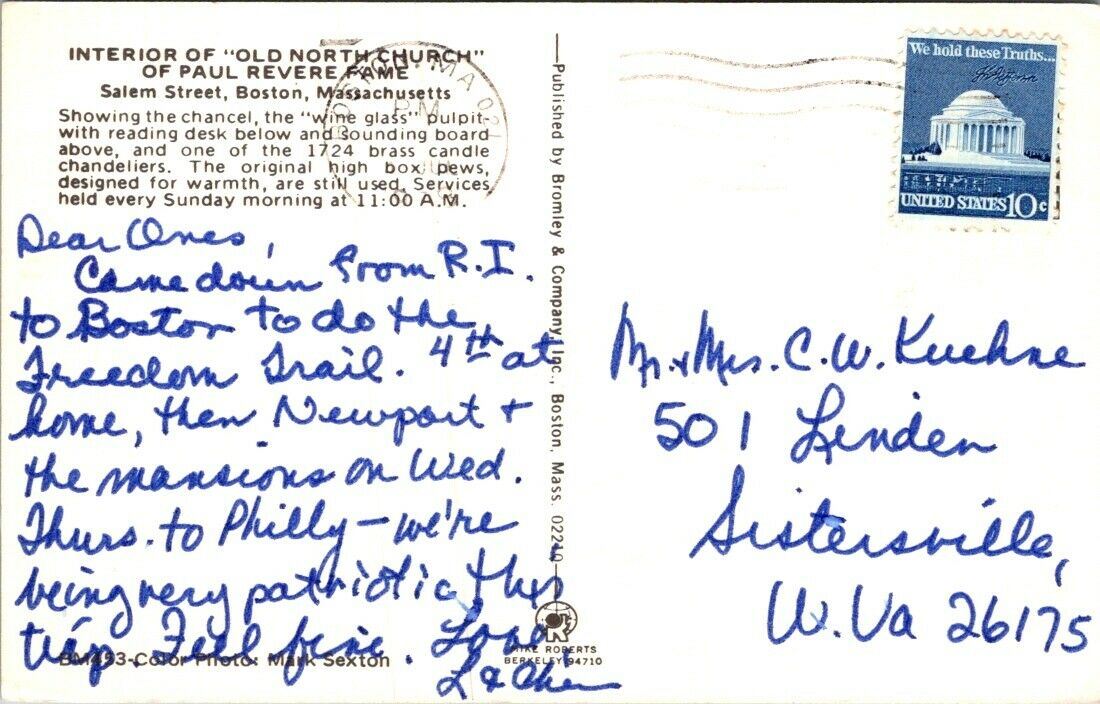 INTERIOR OF "OLD NORTH CHURCH"
OF PAUL REVERE FAME
Salem Street, Boston, Massachusetts
Showing the chancel, the "wine glass" pulpit-
with reading desk below and sounding board
above, and one of the 1724 brass candle
chandeliers. The original high box pews,
designed for warmth, are still used. Services
held every Sunday morning at 11:00 A.M.
Dear Ones,
Came down from R.I.
to Boston to do the
Freedom Trail. 4th at
home, then Newport +
the mansions on Wed.
Thurs. to Philly - we're
being very patriotic this
trip. Feel fine. Love
L &
BM493-Color Photo: Mark Sexton
Published by Bromley & Company, Inc., Boston, Mass. 02210
MIKE ROBERTS
BERKELEY 94710
MA 02
PM
We hold these Truths...
UNITED STATES 10c
Mr. + Mrs. C. W. Kuehne
501 Linden
Sistersville,
W. Va 26175